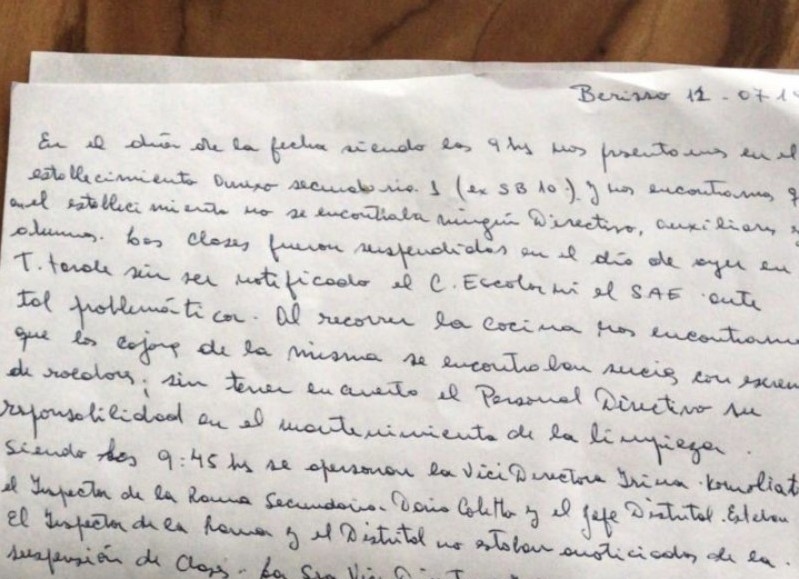 Berisso 12-07-1
En el día de la fecha siendo las 9 hs nos presentamos en el
establecimiento anexo secundaria 1 (ex SB 10.) y nos encontramos q
en el establecimiento no se encontraba ningún Directivo, auxiliares y
alumnos. Las clases fueron suspendidas en el día de ayer en
T. tarde sin ser notificado el C. Escolar ni el SAE ante
tal problemática. Al recorrer la cocina nos encontramos
que los cajones de la misma se encontraban sucios con excrem
de roedores; sin tener en cuenta el Personal Directivo su
responsabilidad en el mantenimiento de la limpieza.
Siendo las 9:45 hs se apersonan la Vici Directora Irina
el Inspector de la Rama Secundaria. Dario Coletto y el Jefe Distrital. Esteban
El Inspector de la Rama y el Distrital no estaban anoticiados de la.
suspensión de Clases. La Sra Vici